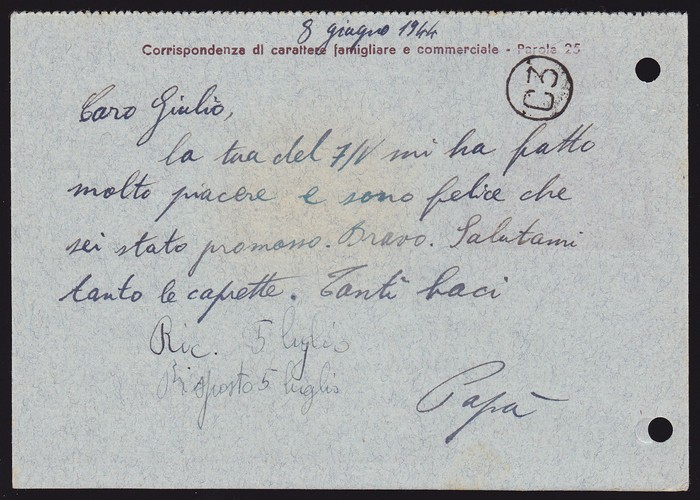 8 giugno 1944
Corrispondenza di carattere famigliare e commerciale - Parole 25
C3
Caro Giulio,
la tua del 7/V mi ha fatto
molto piacere e sono felice che
sei stato promosso. Bravo. Salutami
tanto le caprette. Tanti baci
Ric. 5 luglio
Risposto 5 luglio
Papà